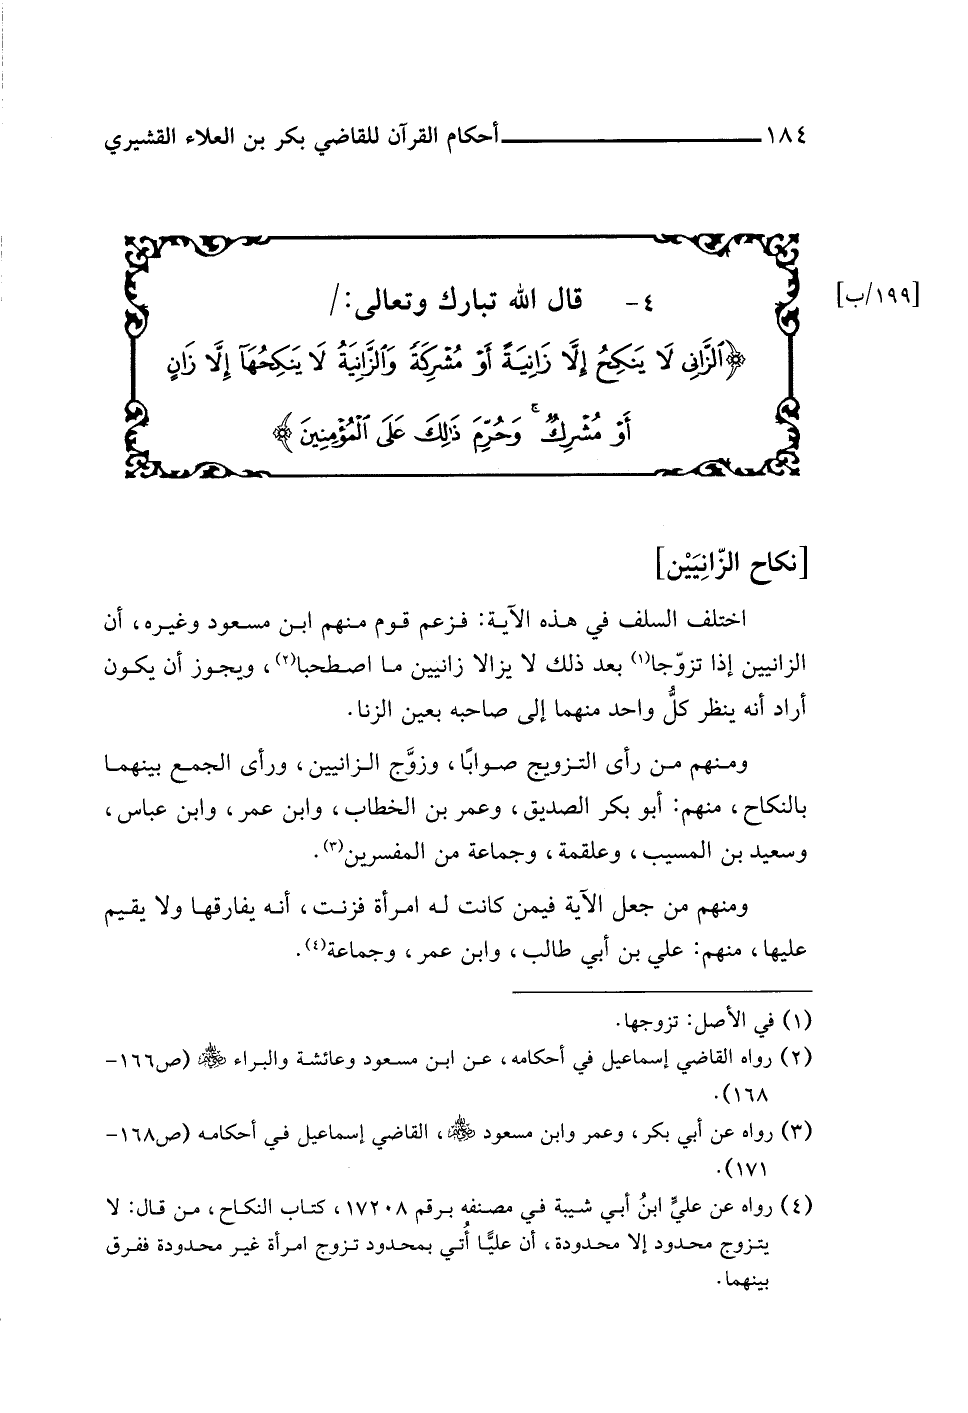 ١٨٤ أحكام القرآن للقاضي بكر بن العلاء القشيري
[١٩٩/ب]
٤- قال الله تبارك وتعالى:/
﴿ٱلزَّانِى لَا يَنكِحُ إِلَّا زَانِيَةً أَوْ مُشْرِكَةً وَٱلزَّانِيَةُ لَا يَنكِحُهَآ إِلَّا زَانٍ
أَوْ مُشْرِكٌ ۚ وَحُرِّمَ ذَٰلِكَ عَلَى ٱلْمُؤْمِنِينَ﴾
[نكاح الزّانِيَيْن]
اختلف السلف في هذه الآية: فزعم قوم منهم ابن مسعود وغيره، أن
الزانيين إذا تزوّجا(١) بعد ذلك لا يزالا زانيين ما اصطحبا(٢)، ويجوز أن يكون
أراد أنه ينظر كلُّ واحد منهما إلى صاحبه بعين الزنا.
ومنهم من رأى التزويج صوابًا، وزوَّج الزانيين، ورأى الجمع بينهما
بالنكاح، منهم: أبو بكر الصديق، وعمر بن الخطاب، وابن عمر، وابن عباس،
وسعيد بن المسيب، وعلقمة، وجماعة من المفسرين(٣).
ومنهم من جعل الآية فيمن كانت له امرأة فزنت، أنه يفارقها ولا يقيم
عليها، منهم: علي بن أبي طالب، وابن عمر، وجماعة(٤).
(١) في الأصل: تزوجها.
(٢) رواه القاضي إسماعيل في أحكامه، عن ابن مسعود وعائشة والبراء ﷺ (ص١٦٦-
١٦٨).
(٣) رواه عن أبي بكر، وعمر وابن مسعود، القاضي إسماعيل في أحكامه (ص١٦٨-
١٧١).
(٤) رواه عن عليٍّ ابنُ أبي شيبة في مصنفه برقم ١٧٢٠٨، كتاب النكاح، من قال: لا
يتزوج محدود إلا محدودة، أن عليًّا أُتي بمحدود تزوج امرأة غير محدودة ففرق
بينهما.